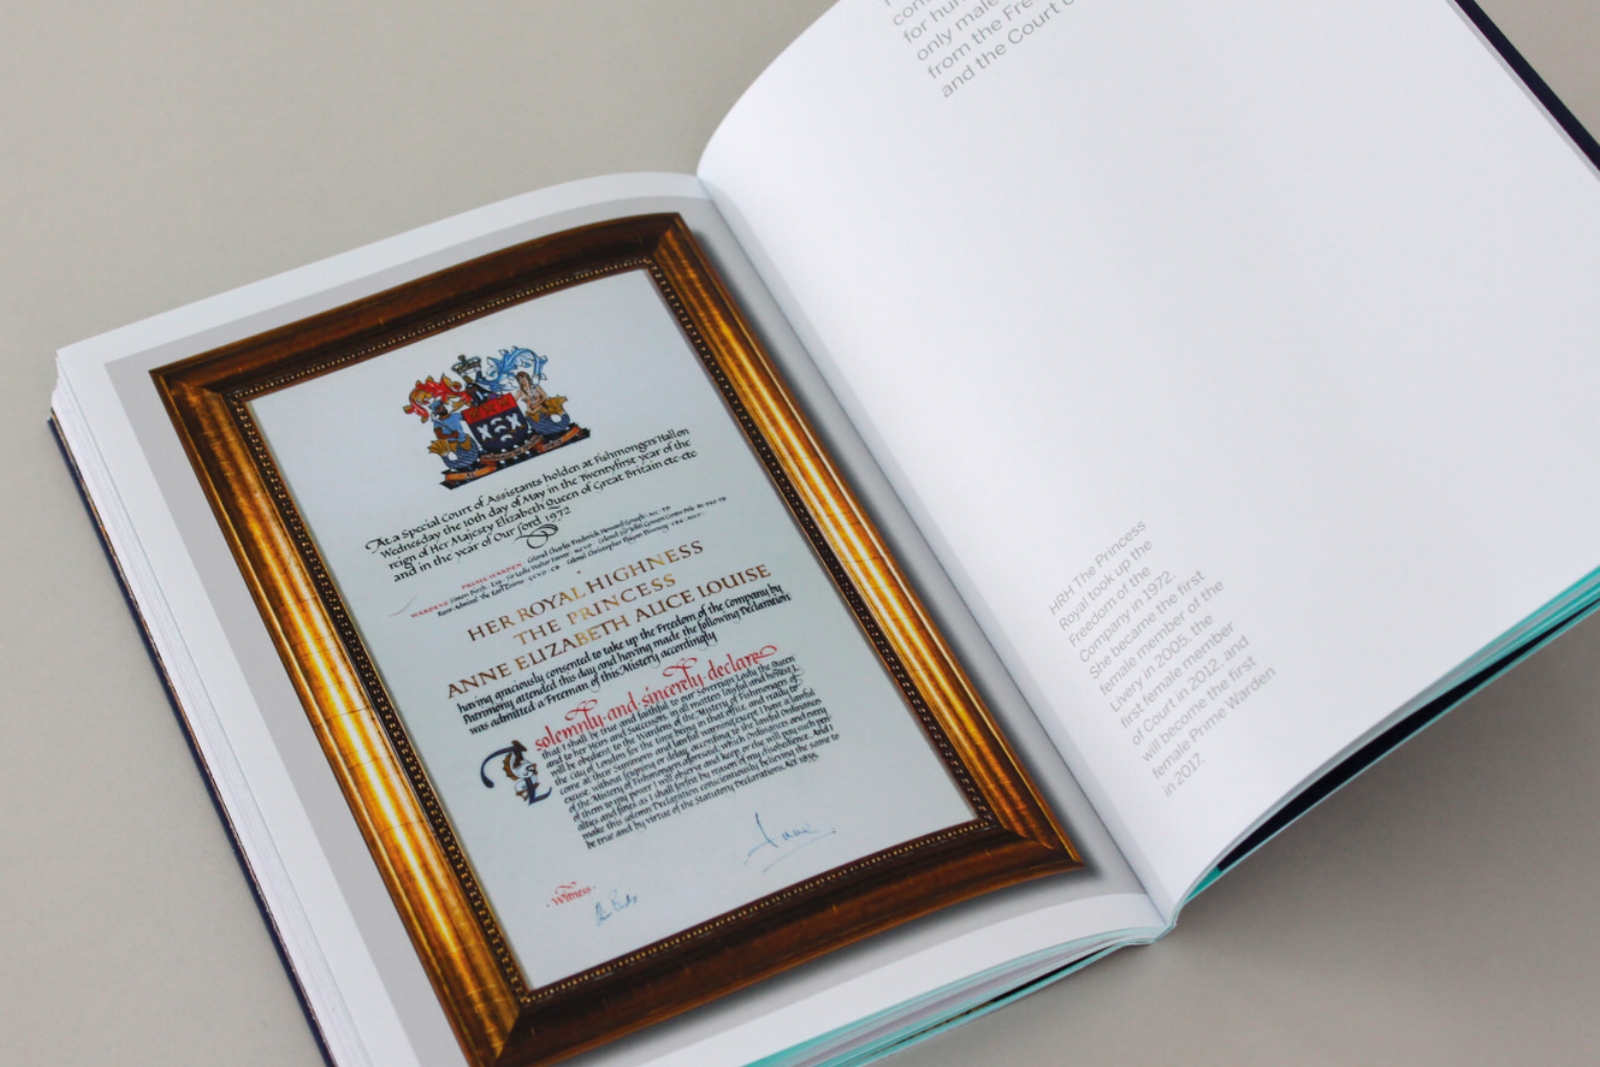 At a Special Court of Assistants holden at Fishmongers Hall on
Wednesday the 10th day of May in the Twentyfirst year of the
reign of Her Majesty Elizabeth Queen of Great Britain etc·etc
and in the year of Our Lord 1972
PRIME WARDEN · Colonel Charles Frederick Howard Gough · MC · TD
WARDENS
HER ROYAL HIGHNESS
THE PRINCESS
ANNE ELIZABETH ALICE LOUISE
having graciously consented to take up the Freedom of the Company by
Patrimony attended this day and having made the following Declaration
was admitted a Freeman of this Mistery accordingly
I
solemnly·and·sincerely·declare
that I shall be true and faithful to our Sovereign Lady the Queen
and to her Heirs and Successors, in all matters lawful and honest I
will be obedient to the Wardens of the Mistery of Fishmongers of
the City of London for the time being in that office, and ready to
come at their Summons and lawful warning, except I have a lawful
excuse, without feigning or delay, according to the lawful ordinances
of the Mistery of Fishmongers aforesaid, which Ordinances and every
of them to my power I will observe and keep or else will pay such pen
alties and fines as I shall forfeit by reason of my disobedience. And I
make this solemn Declaration conscientiously believing the same to
be true and by virtue of the Statutory Declarations Act 1835.
Anne
·Witness·
con
for hu
only male
from the Fre
and the Court o
HRH The Princess
Royal took up the
Freedom of the
Company in 1972.
She became the first
female member of the
Livery in 2005, the
first female member
of Court in 2012, and
will become the first
female Prime Warden
in 2017.